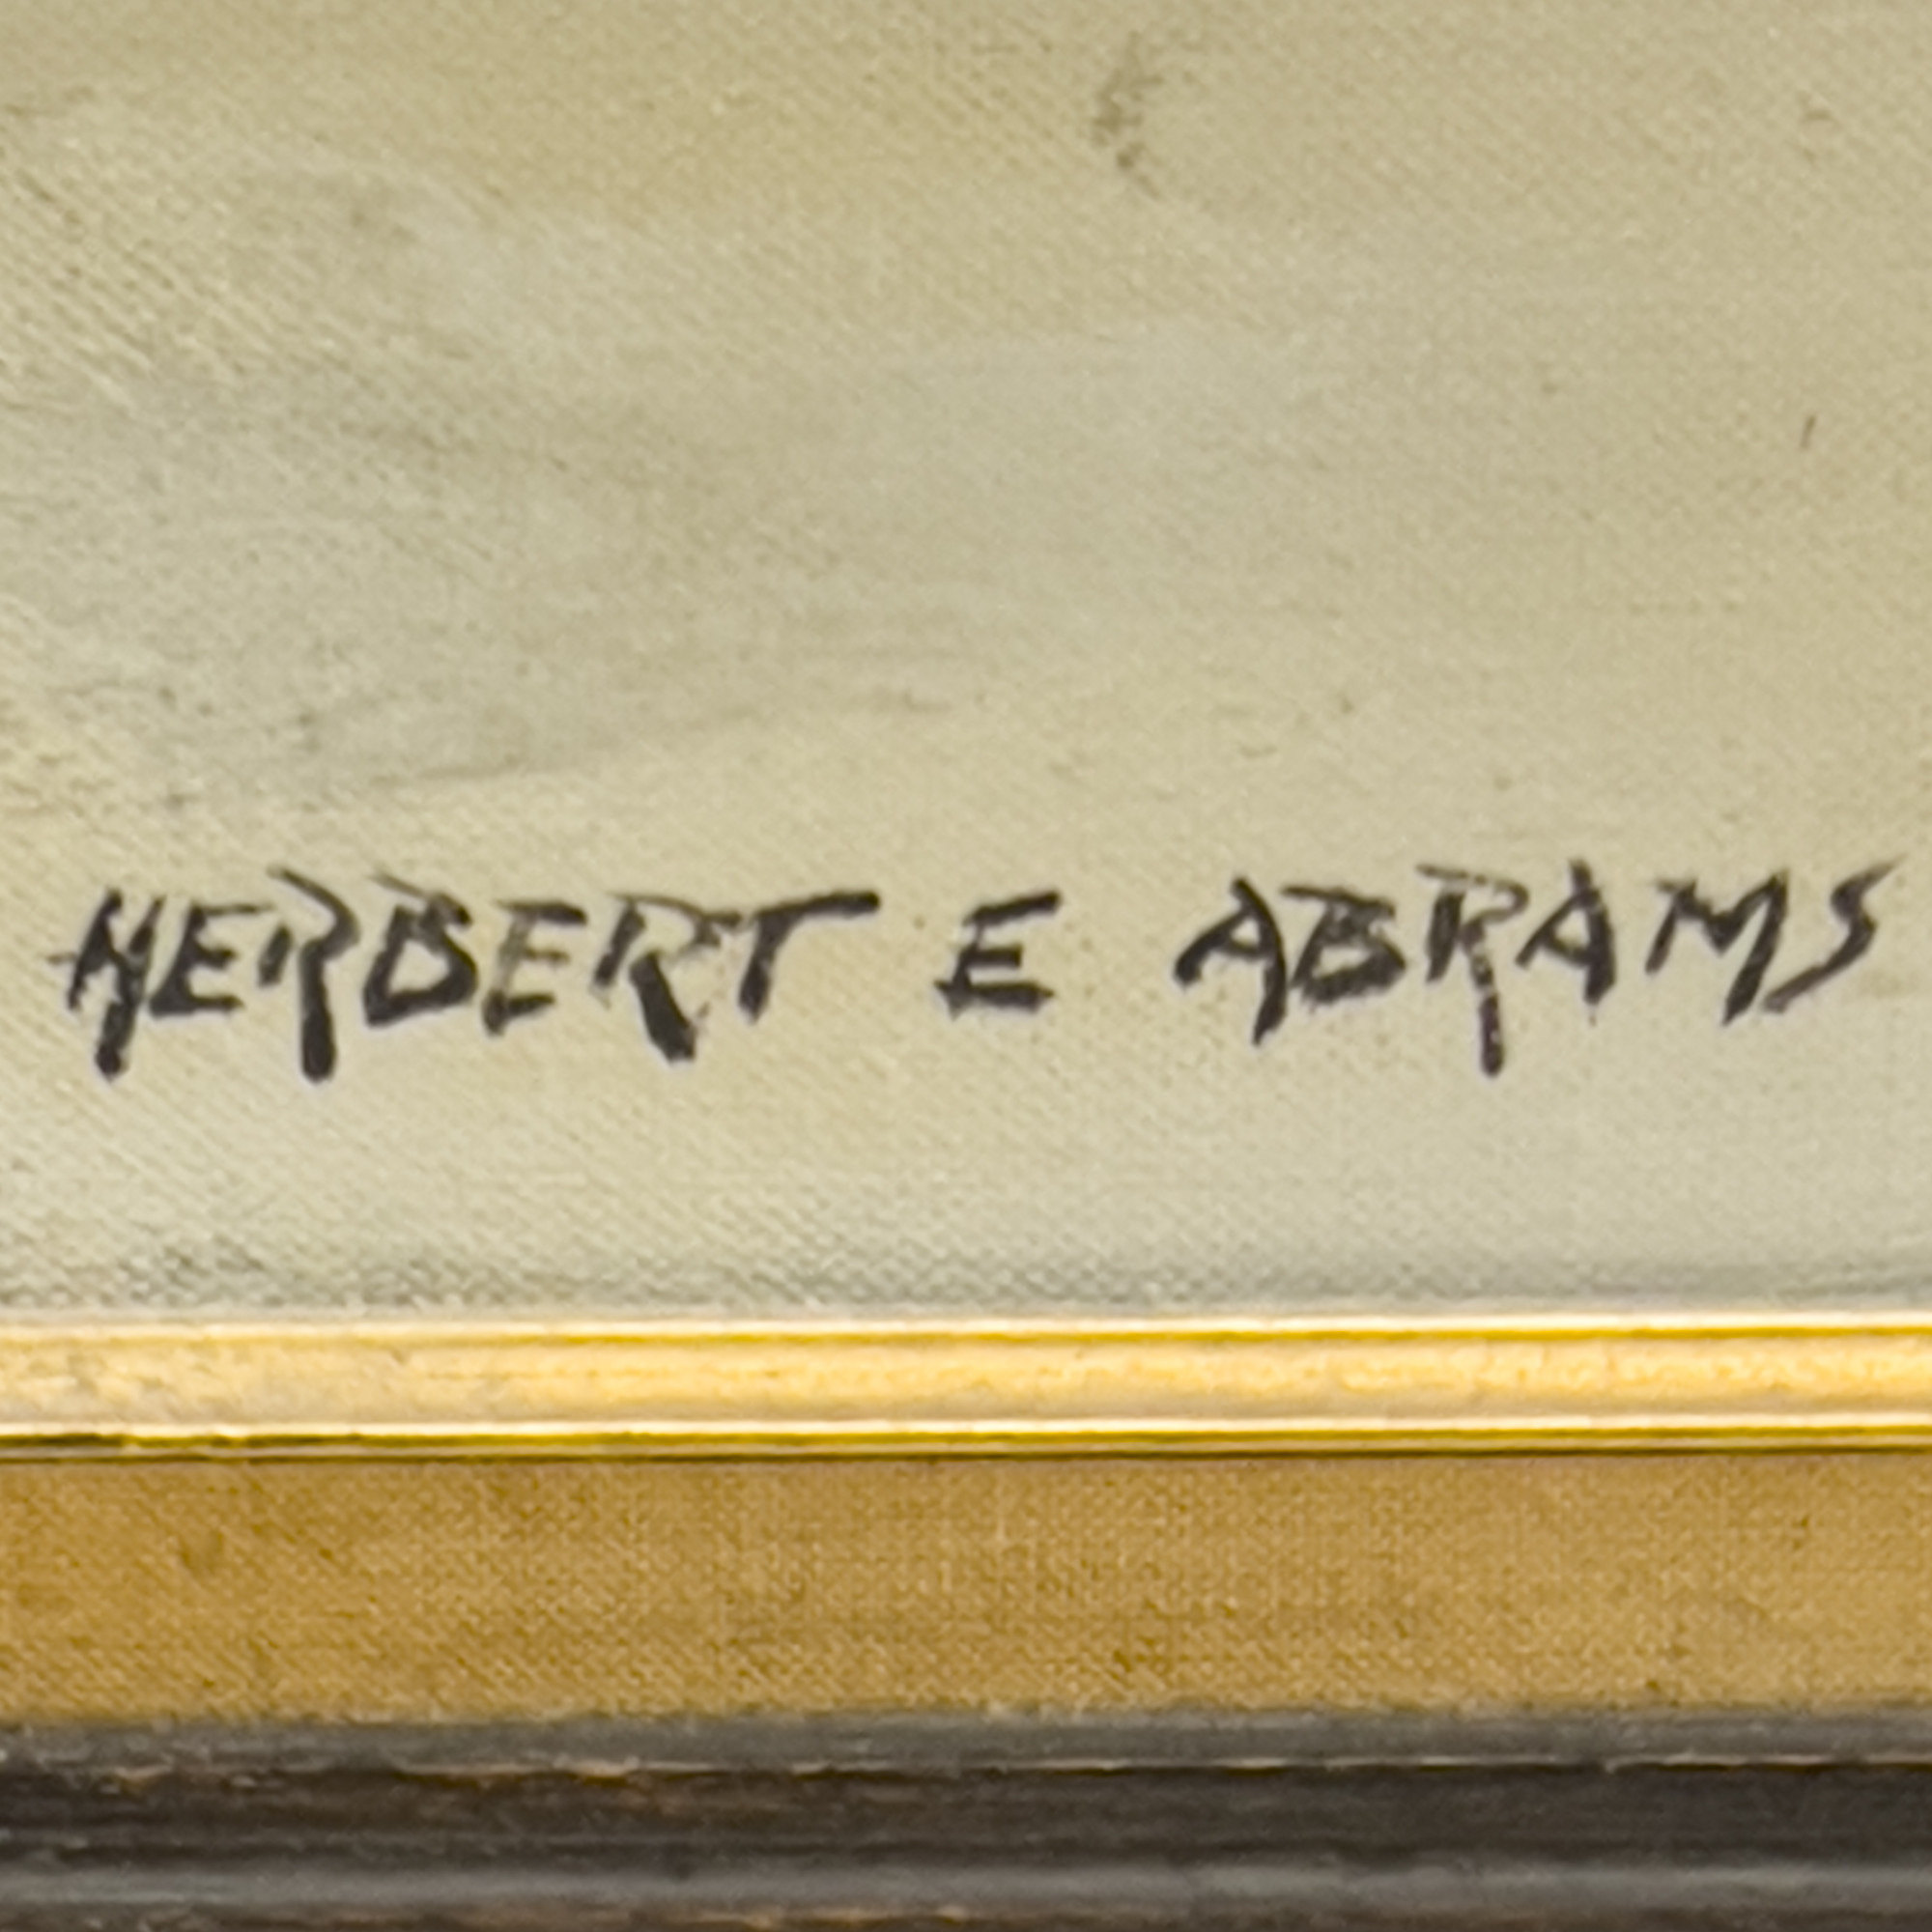 HERBERT E ABRAMS